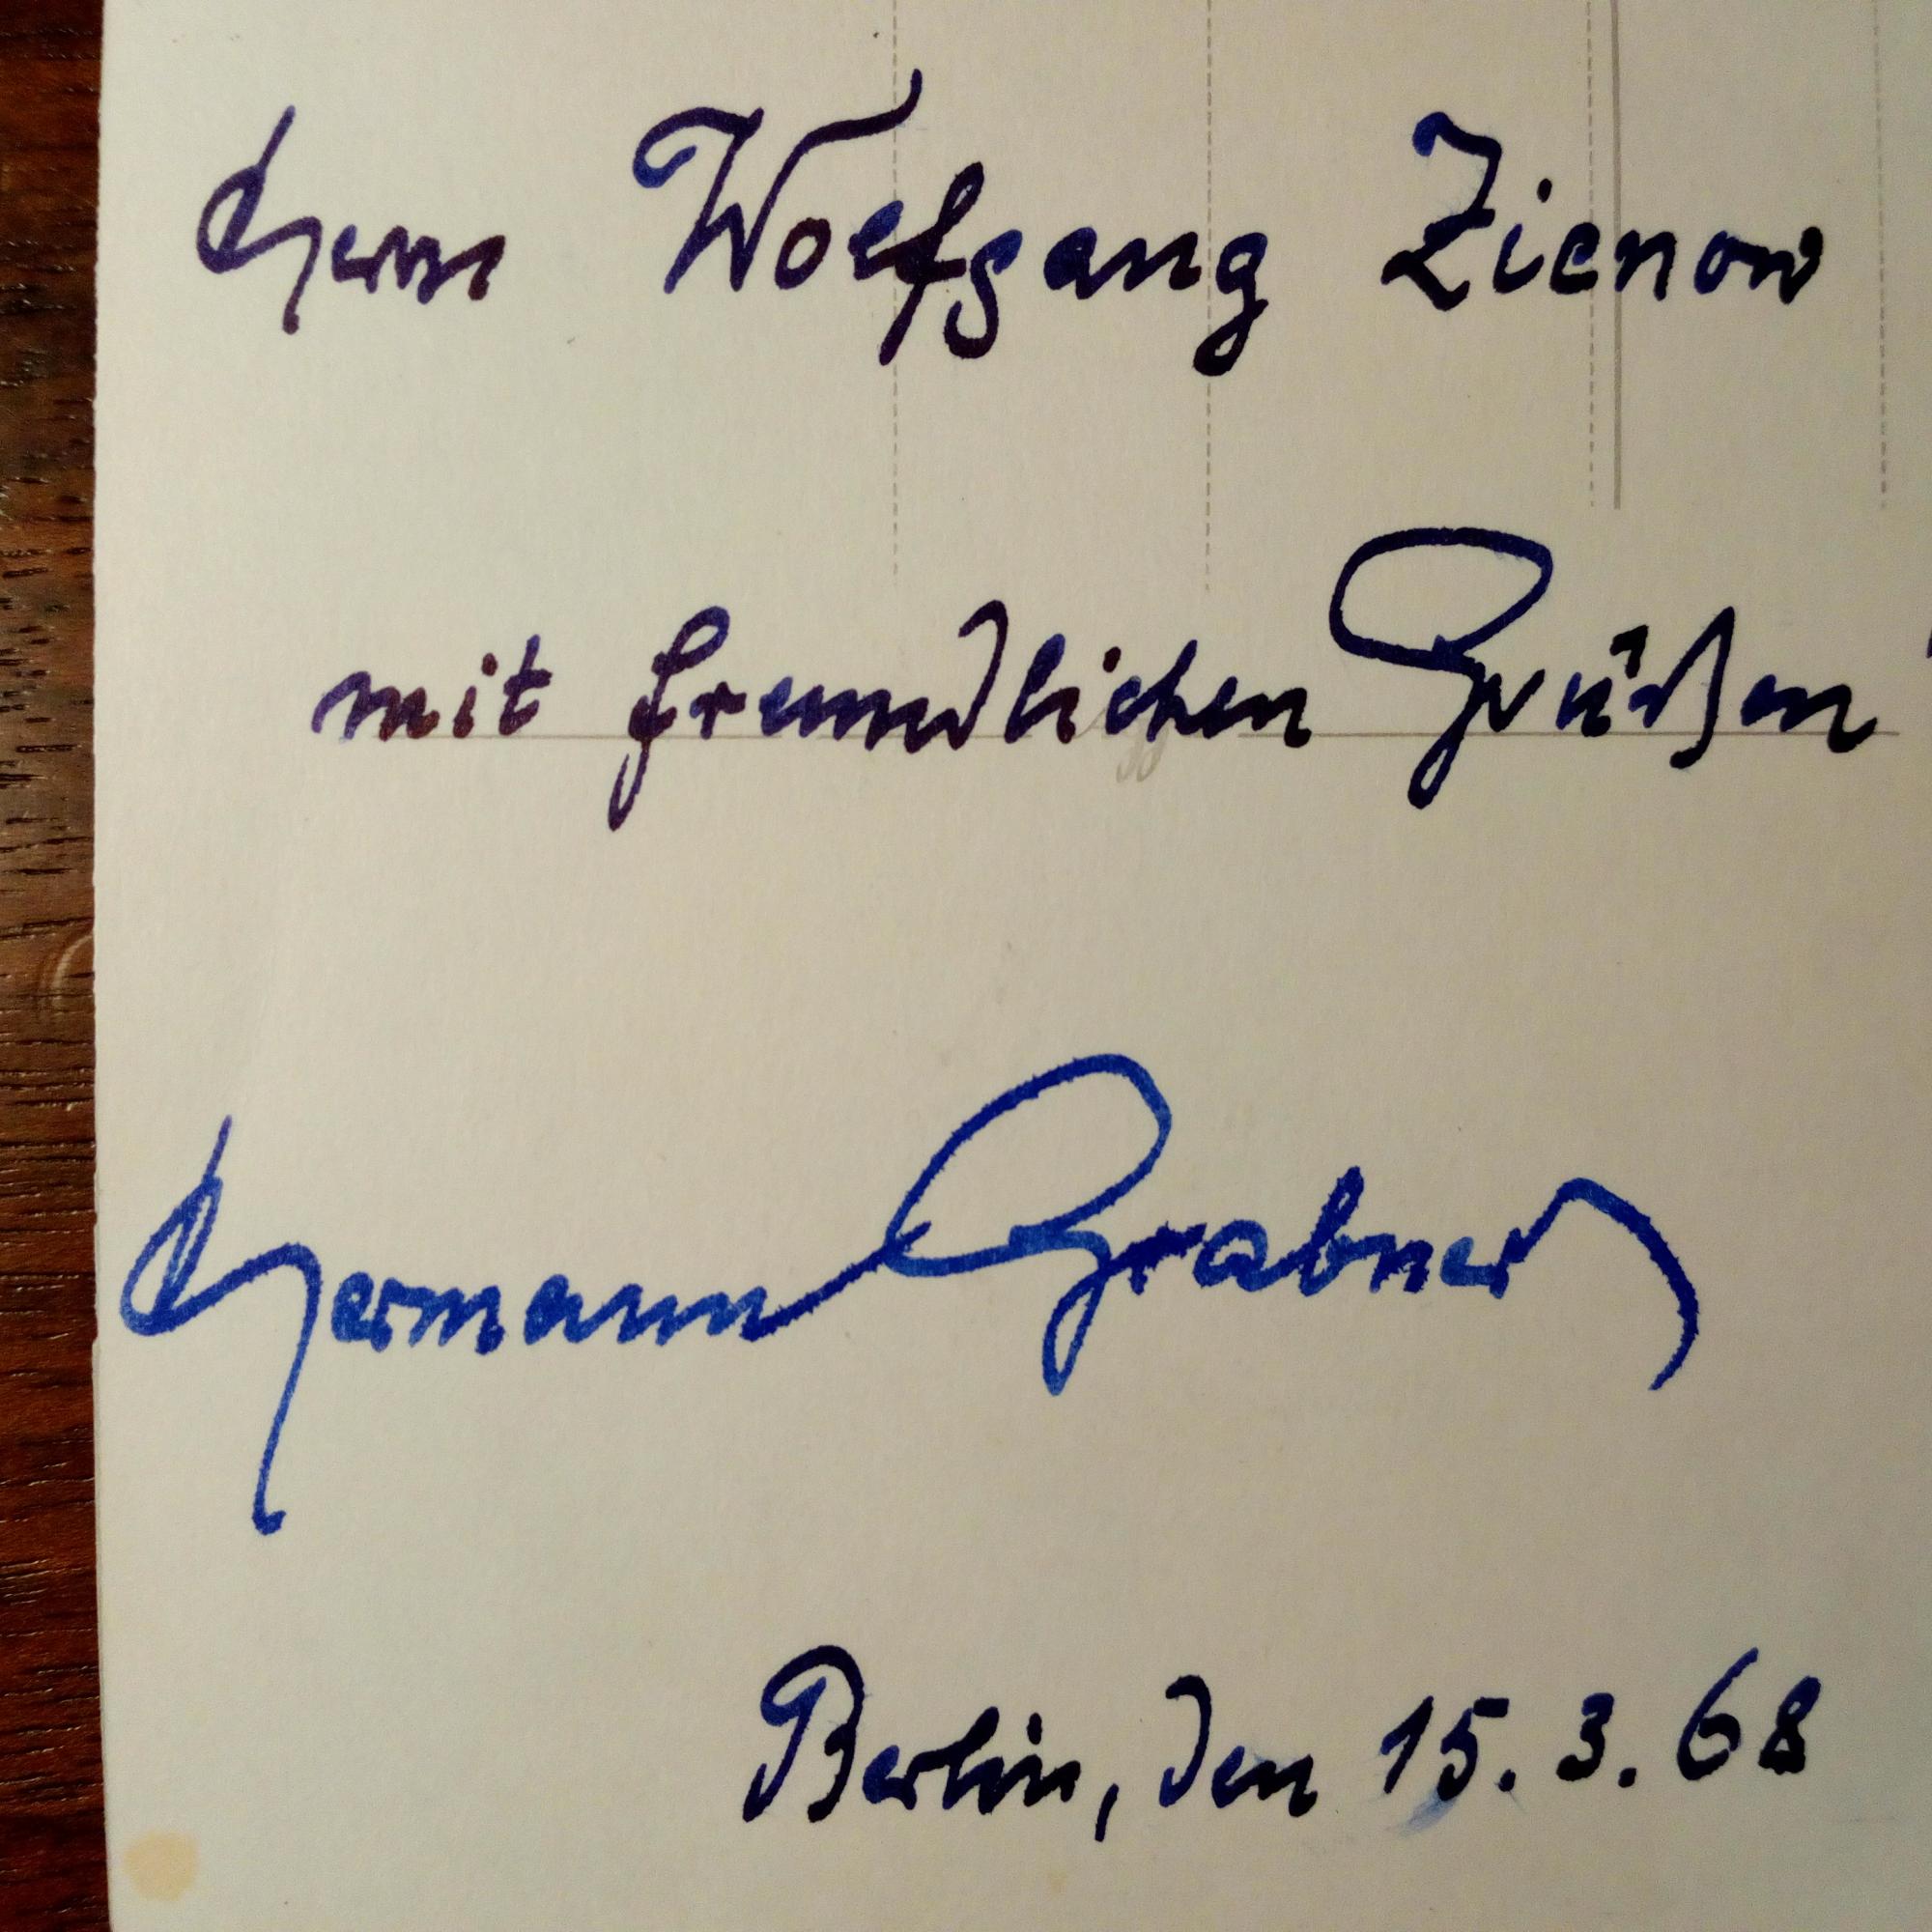 Herrn Wolfgang Zienow
mit freundlichen Grüßen
Hermann Grabner
Berlin, den 15.3.68